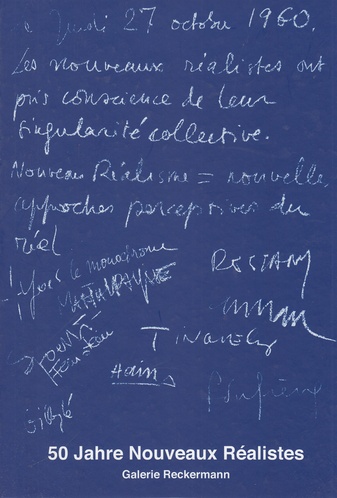 Le Jeudi 27 octobre 1960.
Les nouveaux réalistes ont
pris conscience de leur
singularité collective.
Nouveau Réalisme = nouvelles
approches perceptives du
réel
Yves le monochrome
RESTANY
TINGUELY
Hains
50 Jahre Nouveaux Réalistes
Galerie Reckermann